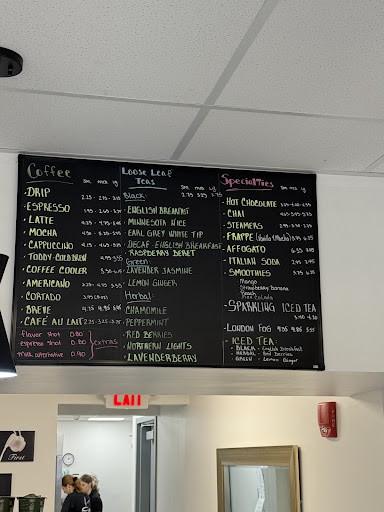 Coffee
sm med lg
DRIP
ESPRESSO
LATTE
MOCHA
CAPPUCCINO
TODDY-COLD BREW
COFFEE COOLER
AMERICANO
CORTADO
BREVE
CAFÉ AU LAIT
flavor shot 0.80
espresso shot 0.80
milk alternative 0.90
extras
Loose Leaf
Teas
sm med lg
Black:
ENGLISH BREAKFAST
MINNESOTA N'ICE
EARL GREY WHITE TIP
DECAF ENGLISH BREAKFAST
RASPBERRY BERET
Green:
LAVENDER JASMINE
LEMON GINGER
Herbal:
CHAMOMILE
PEPPERMINT
RED BERRIES
NORTHERN LIGHTS
LAVENDERBERRY
Specialties
sm med lg
HOT CHOCOLATE
CHAI
STEAMERS
FRAPPE (Vanilla & Mocha)
AFFOGATO
ITALIAN SODA
SMOOTHIES
Mango
Strawberry Banana
Peach
Pina Colada
SPARKLING ICED TEA
LONDON FOG
ICED TEA:
BLACK - English Breakfast
HERBAL - Red Berries
GREEN - Lemon Ginger
EXIT
First